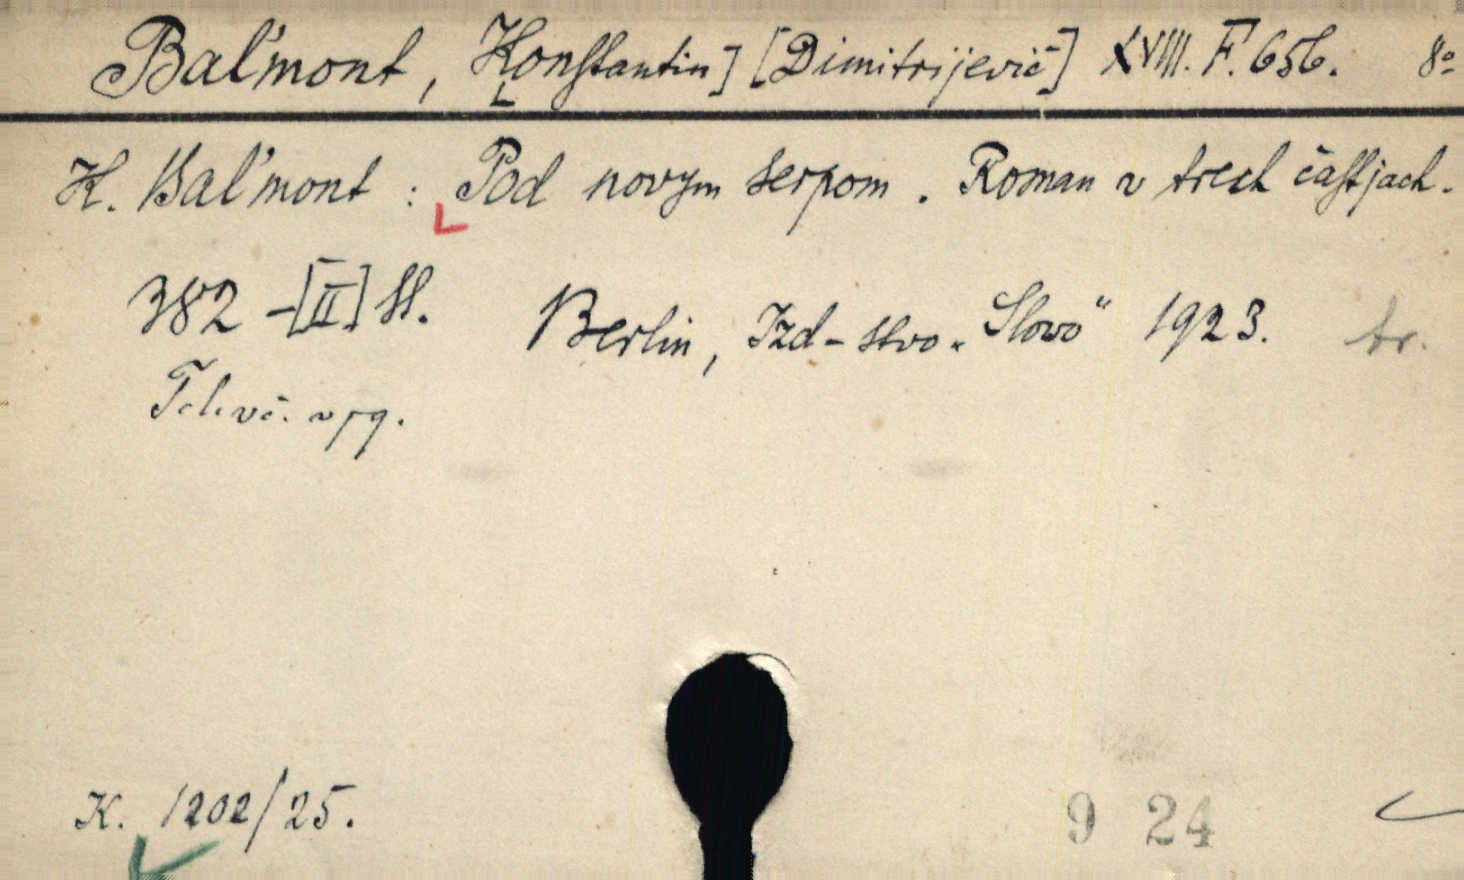 Bal'mont, Konstantin] [Dimitrijevič] XVIII. F. 656. 8°
K. Bal'mont: Pod novym serpom. Roman v trech častjach.
382 -[II] S. Berlin, Izd-stvo „Slovo" 1923. br.
K. 1202/25.
9 24